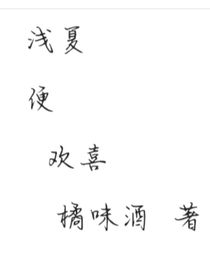 浅夏
便
欢喜
橘味酒 著